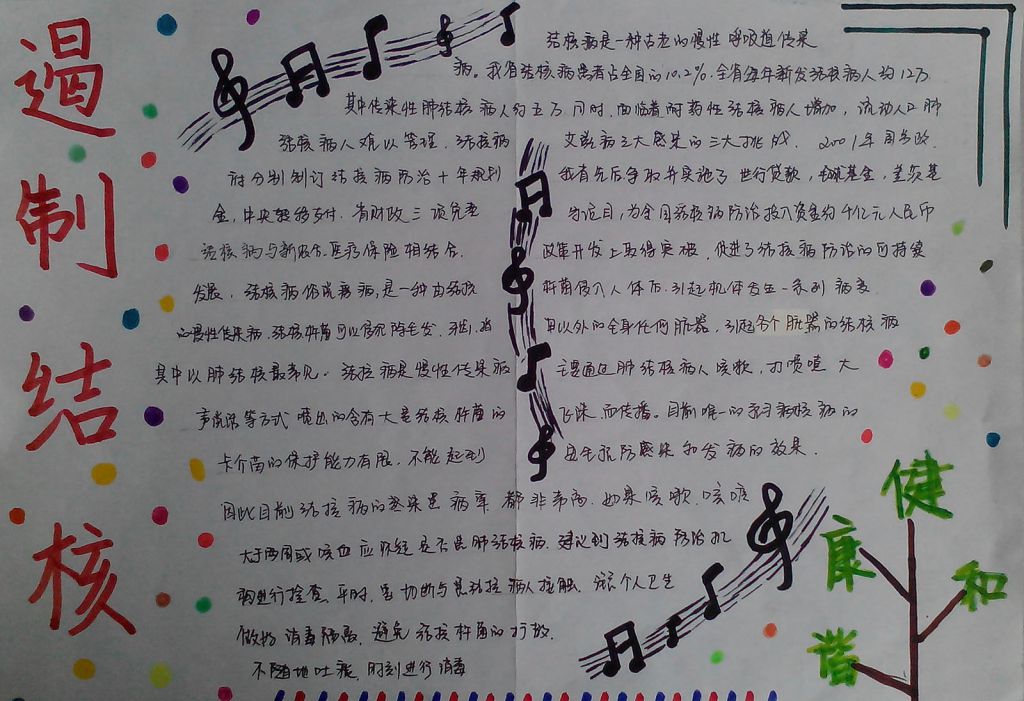 遏制结核
结核病是一种古老的慢性呼吸道传染
病。我省结核病患者占全国的10.2%.全省每年新发结核病人约12万
其中传染性肺结核病人约五万 同时,面临着耐药性结核病人增加,流动人口肺
结核病人难以管理.结核病 双重感染的三大挑战.2001年国务院
计划制订结核病防治十年规划 我省先后争取并实施了世行贷款,全球基金,
金,中央转移支付.省财政三项 项目,为全国结核病防治投入资金约 亿元人民币
结核病与新农合医疗保险相结合. 改革开发上取得突破,促进了结核病防治的可持续
发展.结核病俗说痨病,是一种由结核 杆菌侵入人体后.引起机体发生一系列病变
的慢性传染病.结核杆菌可以侵犯除毛发. 以外的全身任何脏器,引起各个脏器的结核病
其中以肺结核最常见.结核病是慢性传染病 主要通过肺结核病人咳嗽,打喷嚏 大
声说话等方式 喷出的含有大量结核杆菌的 飞沫 而传播。目前唯一的 结核病的
卡介苗的保护能力有限.不能起到 预防感染和发病的效果.
因此目前结核病的感染 病率都非常高.如果咳嗽.咳痰
大于两周或咳血应怀疑是否患肺结核病.建议到结核病防治机
构进行检查.平时.要切断与患结核病人接触. 个人卫生
做好消毒隔离.避免结核杆菌的扩散.
不随地吐痰,时刻进行消毒
健康和谐